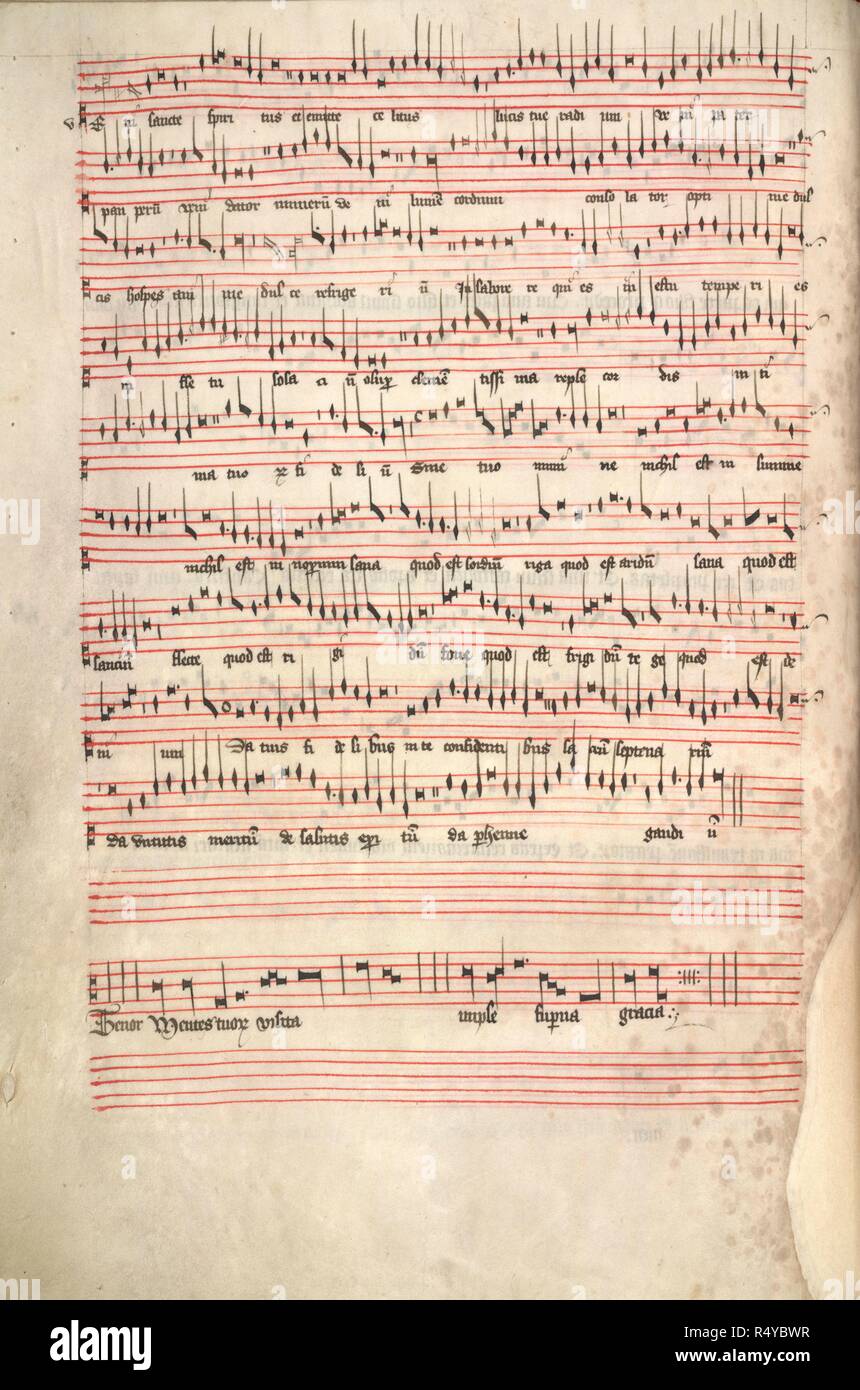 sancte spiri tus et emitte ce litus lucis tue radi um ve pa ter
pau dator munerū ve lumē cordium conso la tor opti me dul
cis hospes ani me dul ce refrige ri ū In labore re qui es in estu tempe ri es
in fle tu sola ci ū clemē tissi ma reple cor dis in ti
ma tuo fi de li ū Sine tuo ne nichil est in lumine
nichil est in sana quod est sordidū riga quod est aridū sana quod est
sauciū flecte quod est ri gi dū foue quod est frigi dū re ge quod est de
ui um Da tuis fi de li bus in te confidenti bus sa crū septena riū
da virtutis meritū de salutis exi tū da phenne gaudi ū
Tenor Mentes tuoꝝ visita imple superna gracia
alamy
Image ID: R4YBWR
www.alamy.com